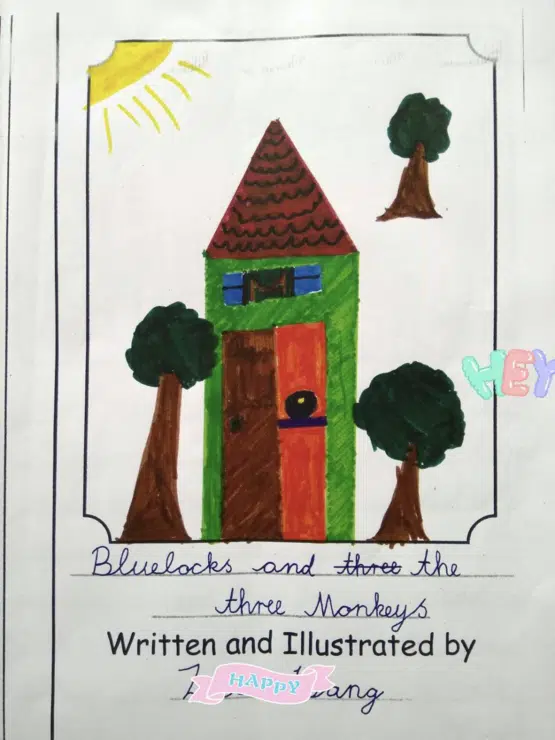 HEY
Bluelocks and three the
three Monkeys
Written and Illustrated by
HAPPY